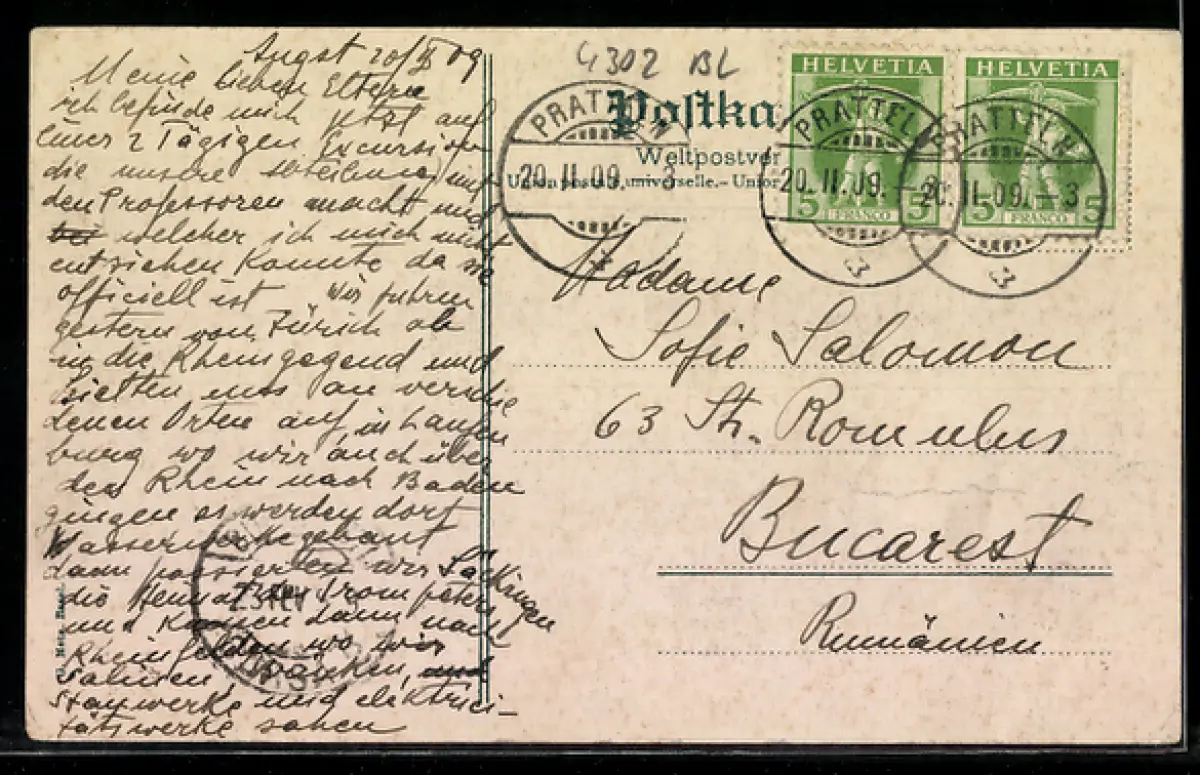 Augst 20/II 09
Meine lieben Eltern
ich befinde mich jetzt auf
einer 2 Tägigen Excursion
die unsere Abteilung mit
den Professoren macht und
welcher ich mich nicht
entziehen konnte da sie
officiell ist Wir fuhren
gestern von Zürich ab
in die Rheingegend und
hielten uns an verschie
denen Orten auf, in Laufen
burg wo wir auch über
den Rhein nach Baden
gingen es werden dort
Wasserwerke gebaut
dann passierten wir Säckingen
die Heimat des Trompeters
und kamen dann nach
Rheinfelden wo wir
Salinen,
Stauwerke und elektrici-
tätswerke sahen
4302 BL
Postka
Weltpostver
Union postale universelle. - Union
HELVETIA
5 FRANCO 5
HELVETIA
5 FRANCO 5
PRATTELN
20.II.09. - 3
PRATTELN
20.II.09. - 3
PRATTELN
20.II.09. - 3
Madame
Sofie Salomon
63 Str. Romulus
Bucarest
Rumänien